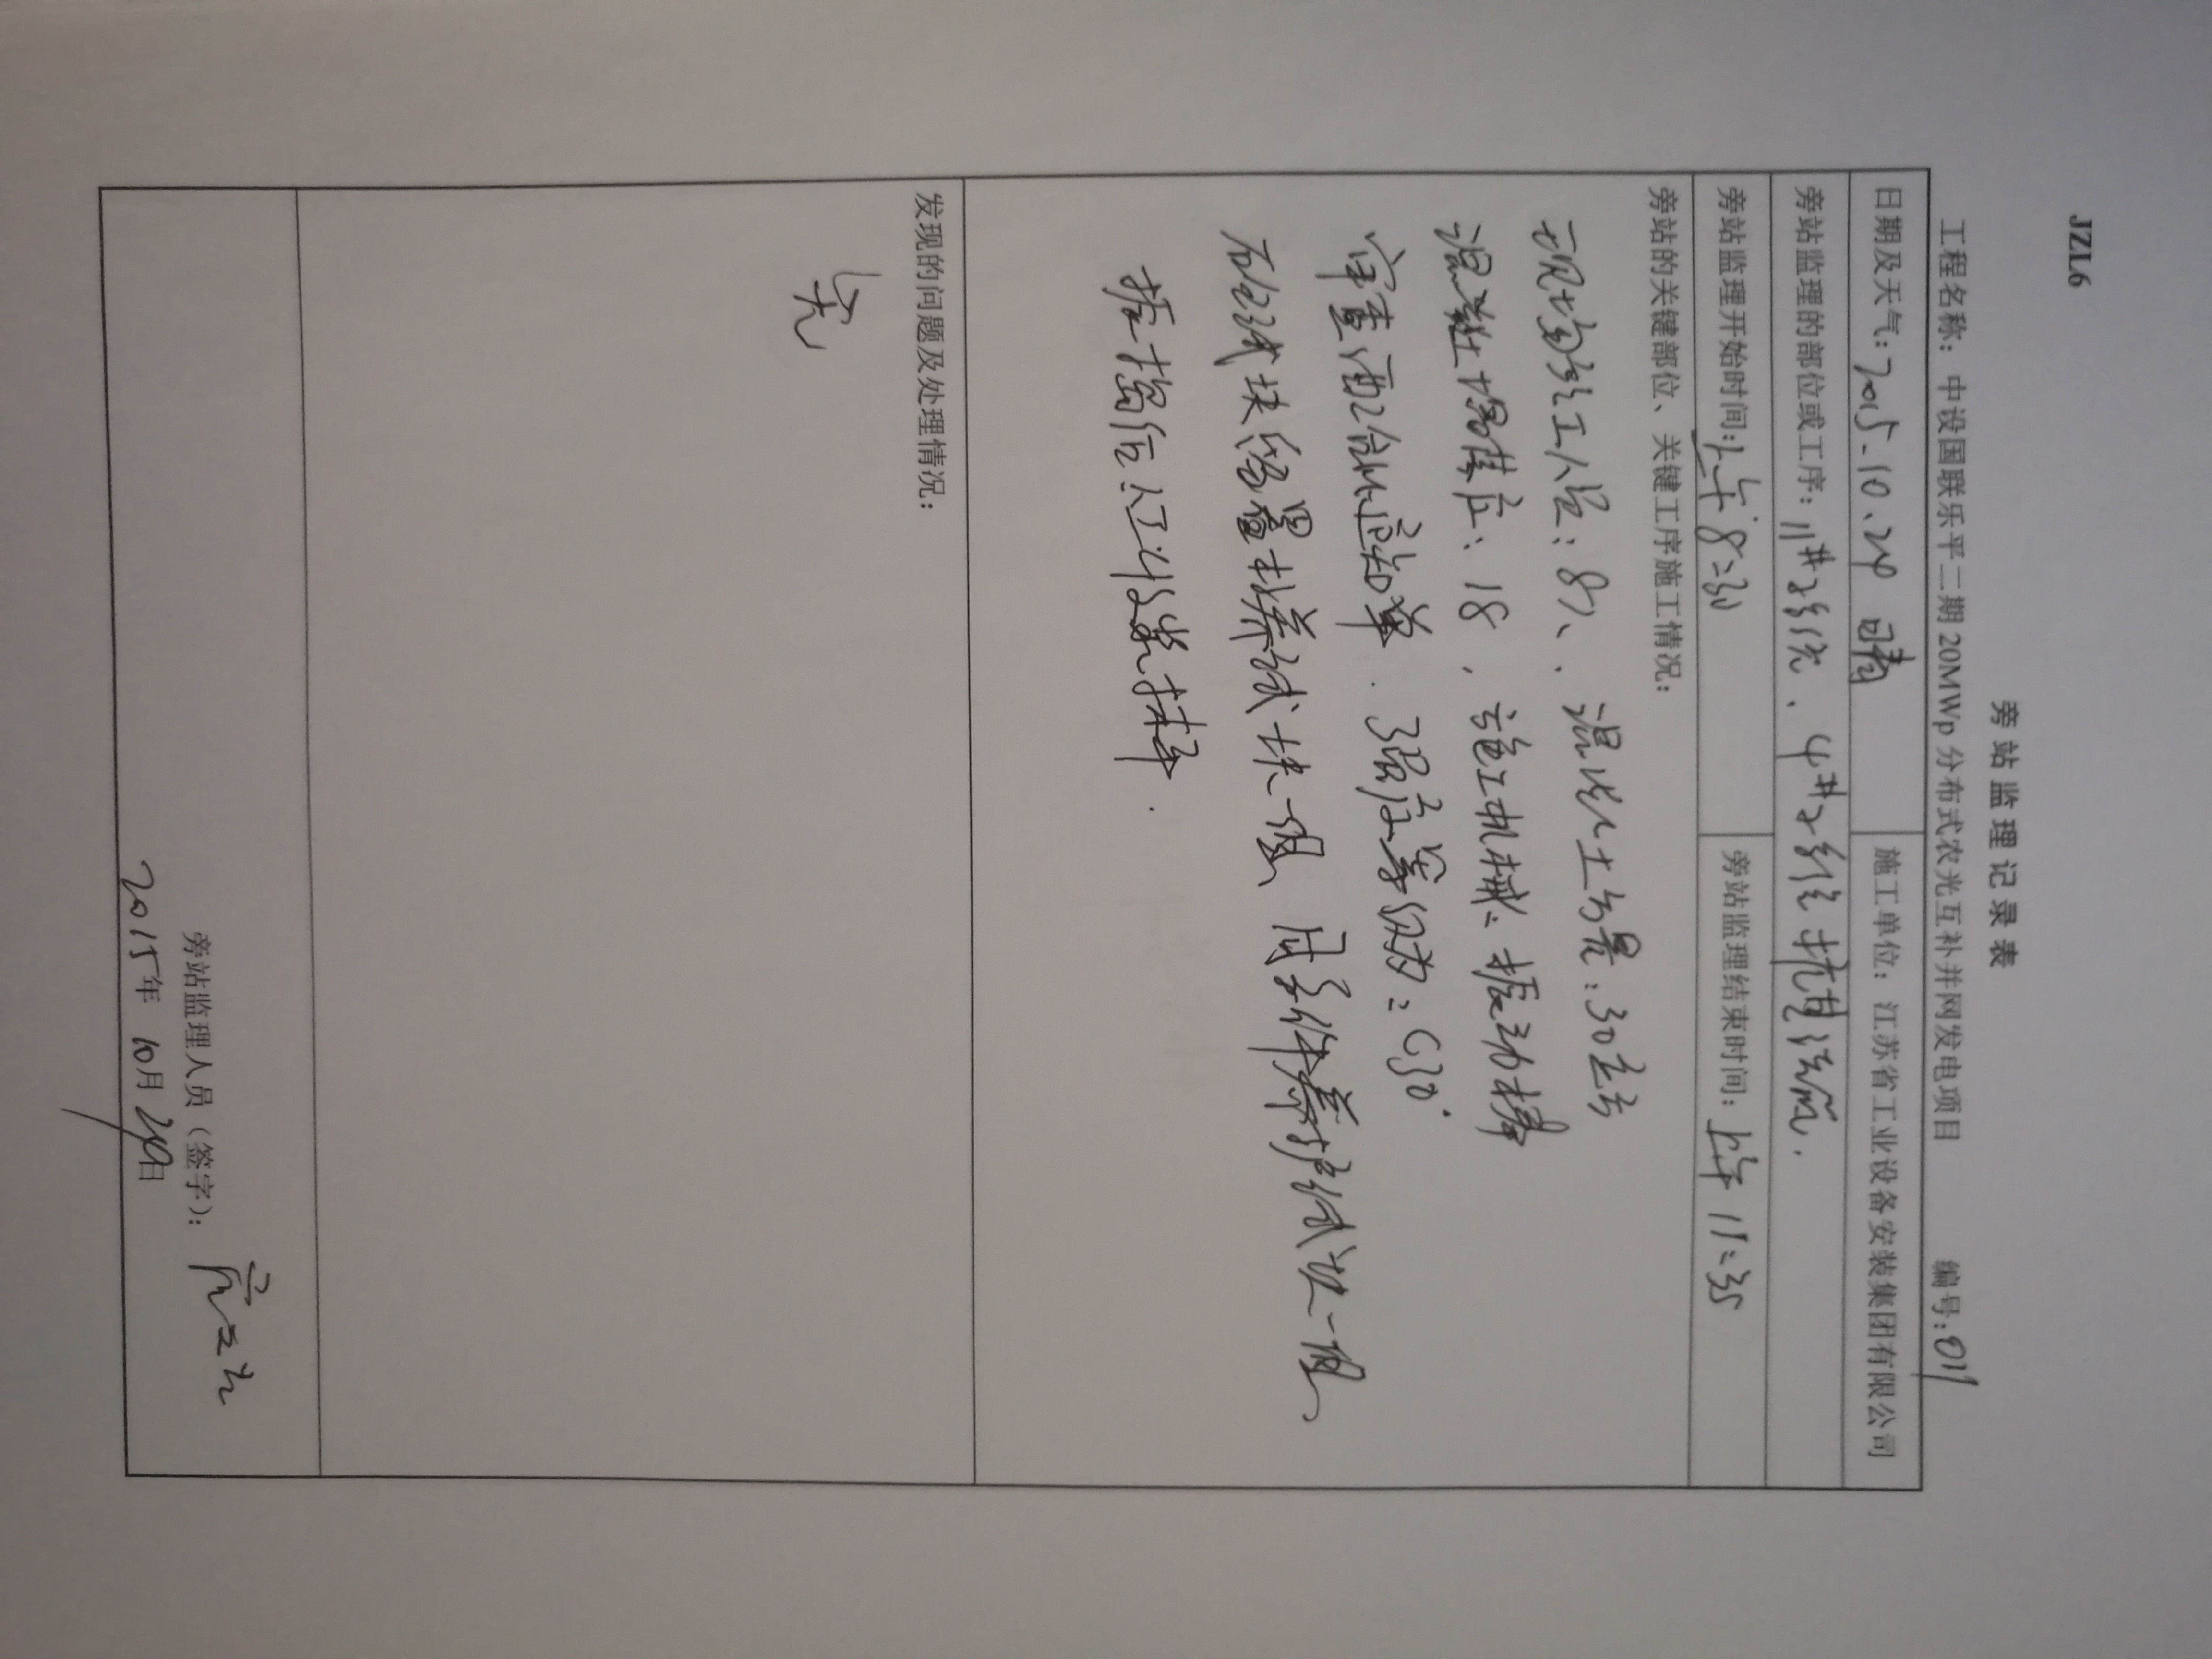 JZL6
旁站监理记录表
工程名称：中设国联乐平二期20MWp分布式农光互补并网发电项目 编号：011
日期及天气：2015.10.24 晴 施工单位：江苏省工业设备安装集团有限公司
旁站监理的部位或工序：11#2系统、4#2系统桩基浇筑.
旁站监理开始时间：上午8:30 旁站监理结束时间：上午11:35
旁站的关键部位、关键工序施工情况：
现场施工人员：8人、混凝土方量：30立方
混凝土塌落度：18，施工机械：振动棒
审查配合比通知单.强度等级为：C30.
砼试块留置标养试块一组 同条件养护试块一组
振捣后人工收浆抹平.
发现的问题及处理情况：
无
旁站监理人员（签字）：
2015年10月24日